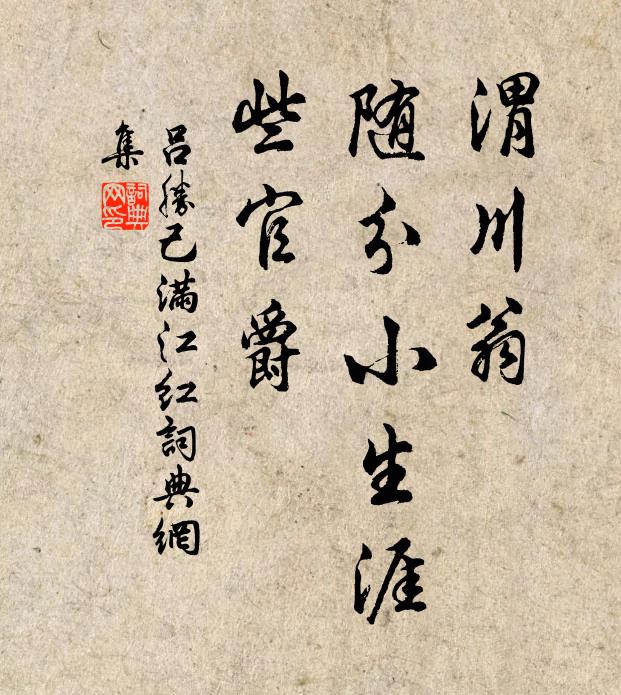 渭川翁
随分小生涯
些官爵
吕勝己满江红詞典網
集
詞典
网印